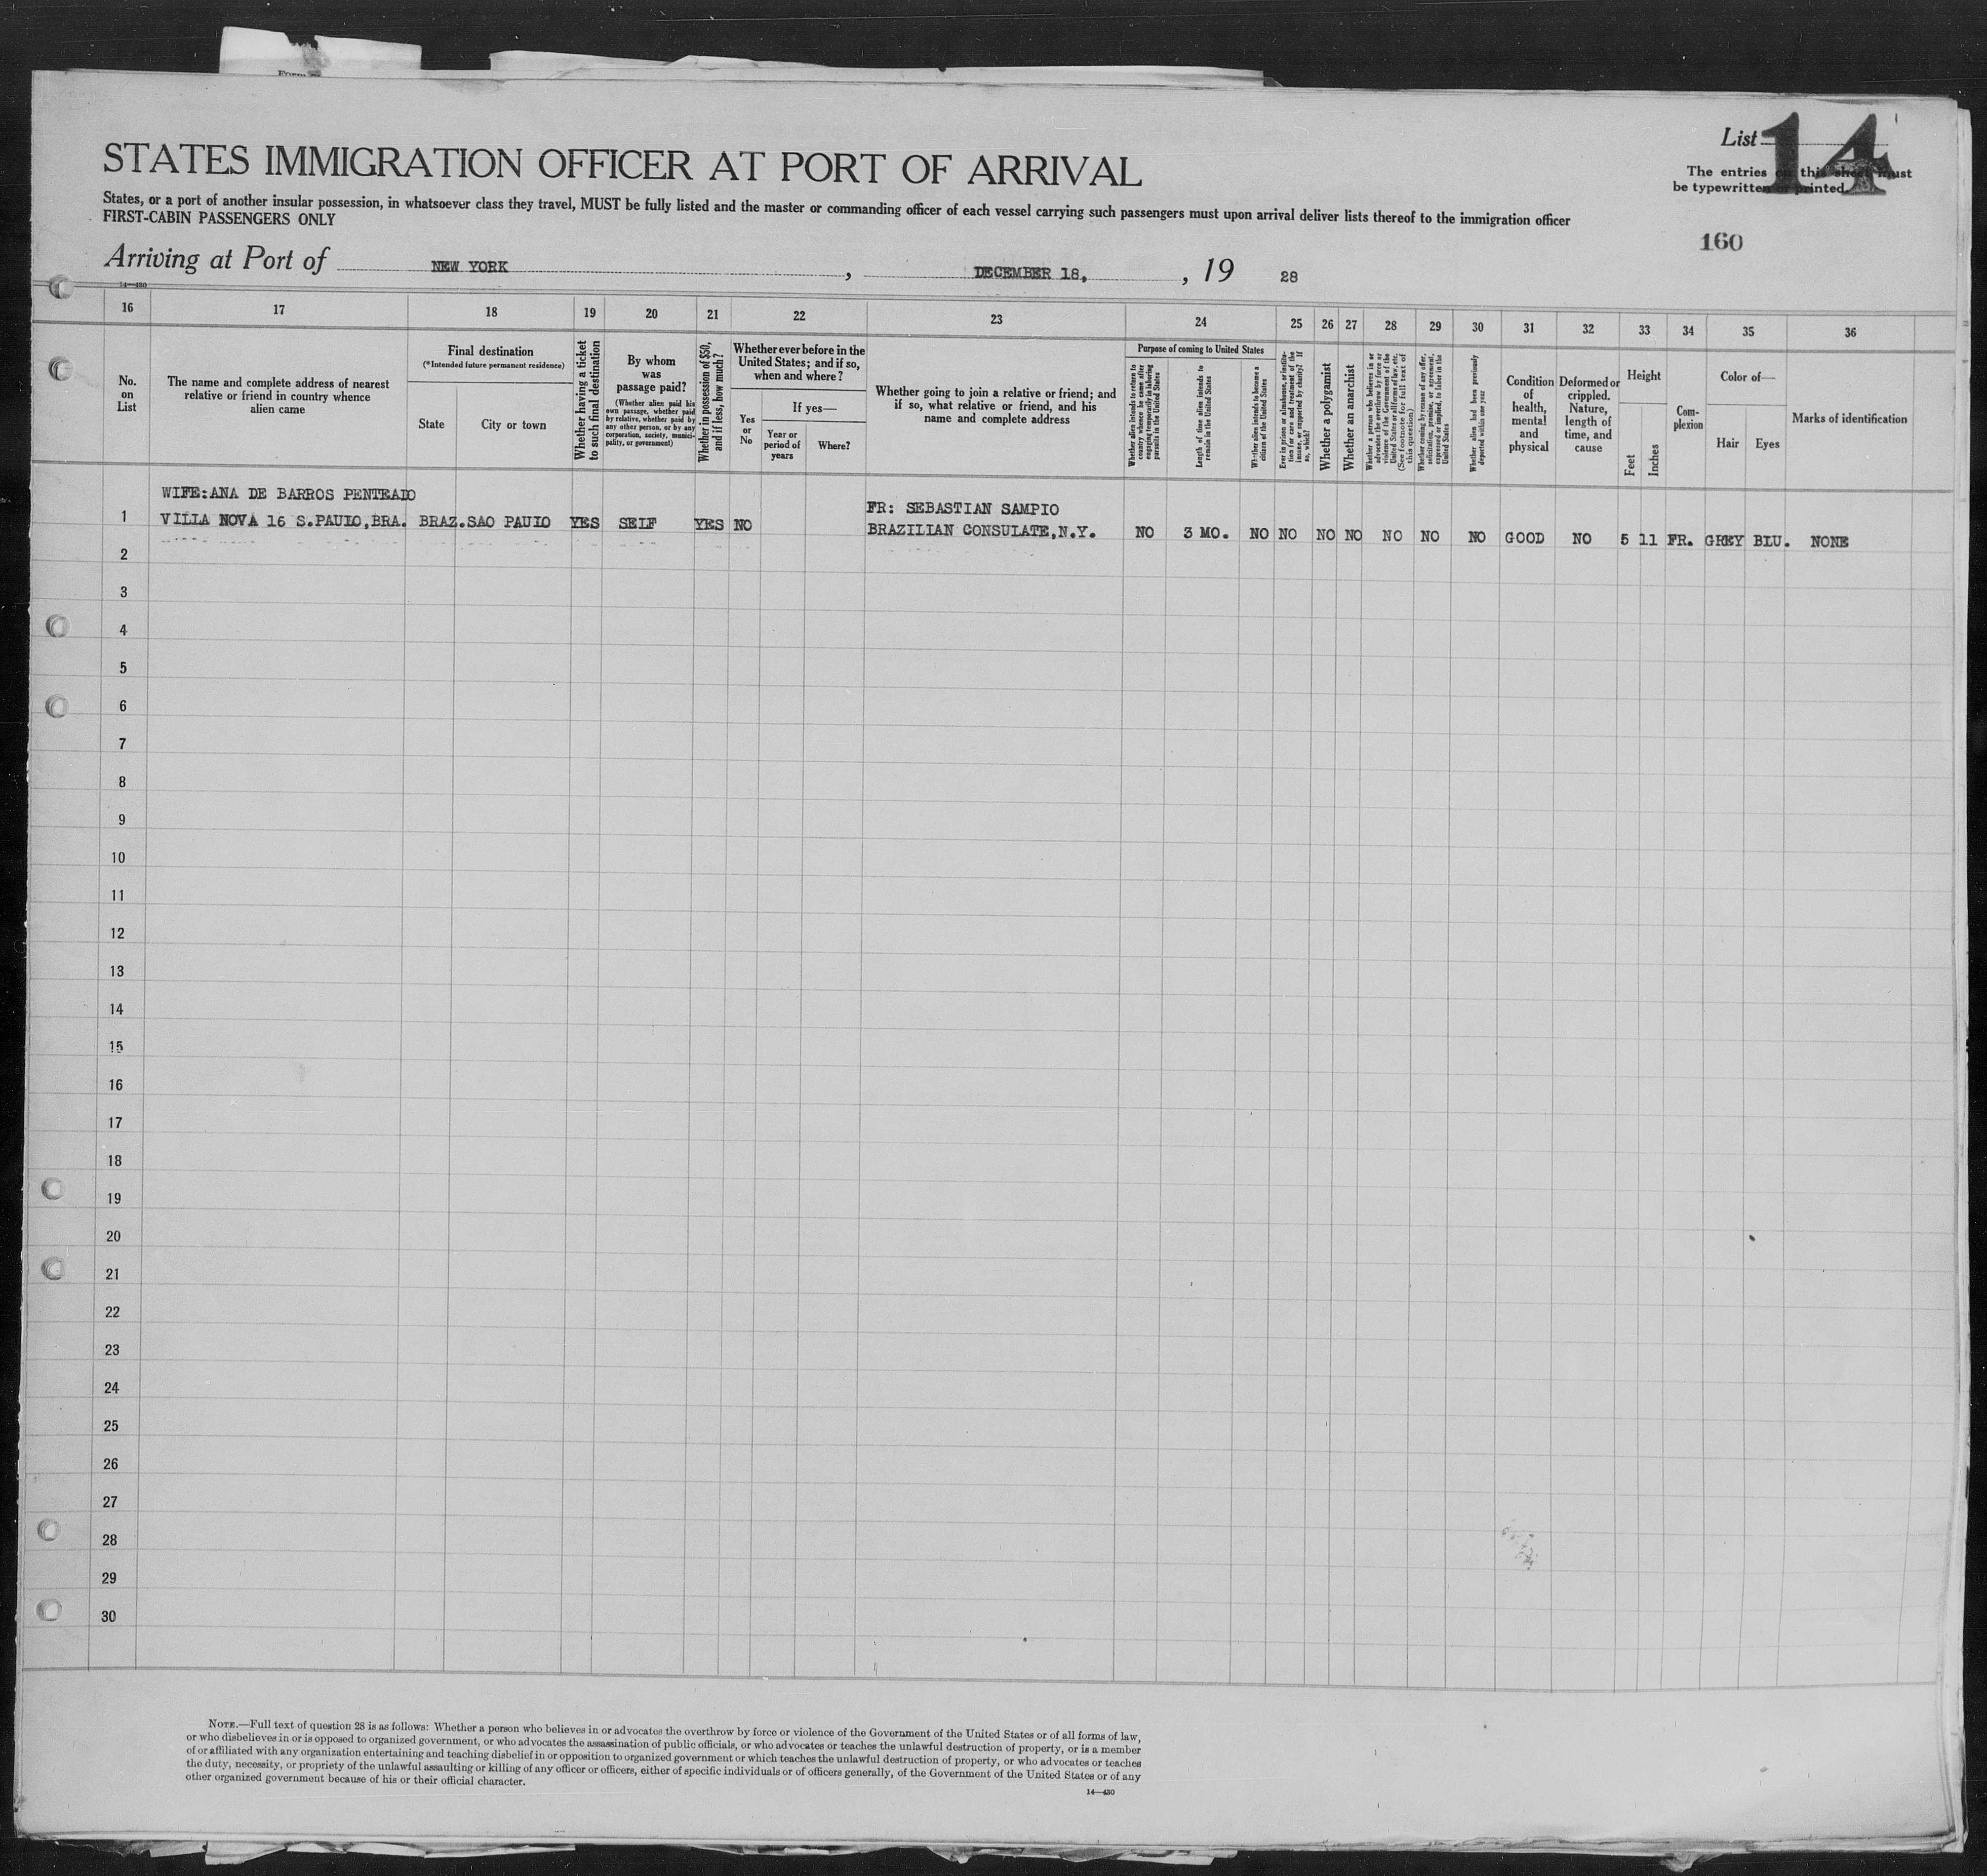 Form
List 14
STATES IMMIGRATION OFFICER AT PORT OF ARRIVAL
The entries on this sheet must
be typewritten or printed.
States, or a port of another insular possession, in whatsoever class they travel, MUST be fully listed and the master or commanding officer of each vessel carrying such passengers must upon arrival deliver lists thereof to the immigration officer
FIRST-CABIN PASSENGERS ONLY
160
Arriving at Port of NEW YORK, DECEMBER 18, , 19 28
14—430
16 17 18 19 20 21 22 23 24 25 26 27 28 29 30 31 32 33 34 35 36
No.
on
List
The name and complete address of nearest
relative or friend in country whence
alien came
Final destination
(*Intended future permanent residence)
State
City or town
Whether having a ticket
to such final destination
By whom
was
passage paid?
(Whether alien paid his
own passage, whether paid
by relative, whether paid by
any other person, or by any
corporation, society, munici-
pality, or government)
Whether in possession of $50,
and if less, how much?
Whether ever before in the
United States; and if so,
when and where?
Yes
or
No
If yes—
Year or
period of
years
Where?
Whether going to join a relative or friend; and
if so, what relative or friend, and his
name and complete address
Purpose of coming to United States
Whether alien intends to return to
country whence he came after
engaging temporarily in laboring
pursuits in the United States
Length of time alien intends to
remain in the United States
Whether alien intends to become a
citizen of the United States
Ever in prison or almshouse, or institu-
tion for care and treatment of the
insane, or supported by charity? If
so, which?
Whether a polygamist
Whether an anarchist
Whether a person who believes in or
advocates the overthrow by force or
violence of the Government of the
United States or all forms of law, etc.
(See footnote for full text of
this question)
Whether coming by reason of any offer,
solicitation, promise, or agreement,
expressed or implied, to labor in the
United States
Whether alien had been previously
deported within one year
Condition
of
health,
mental
and
physical
Deformed or
crippled.
Nature,
length of
time, and
cause
Height
Feet
Inches
Com-
plexion
Color of—
Hair
Eyes
Marks of identification
WIFE:ANA DE BARROS PENTEADO
FR: SEBASTIAN SAMPIO
1 VILLA NOVA 16 S.PAULO,BRA. BRAZ.SAO PAULO YES SELF YES NO BRAZILIAN CONSULATE,N.Y. NO 3 MO. NO NO NO NO NO NO NO GOOD NO 5 11 FR. GREY BLU. NONE
2
3
4
5
6
7
8
9
10
11
12
13
14
15
16
17
18
19
20
21
22
23
24
25
26
27
28
29
30
NOTE.—Full text of question 28 is as follows: Whether a person who believes in or advocates the overthrow by force or violence of the Government of the United States or of all forms of law,
or who disbelieves in or is opposed to organized government, or who advocates the assassination of public officials, or who advocates or teaches the unlawful destruction of property, or is a member
of or affiliated with any organization entertaining and teaching disbelief in or opposition to organized government or which teaches the unlawful destruction of property, or who advocates or teaches
the duty, necessity, or propriety of the unlawful assaulting or killing of any officer or officers, either of specific individuals or of officers generally, of the Government of the United States or of any
other organized government because of his or their official character.
14—430